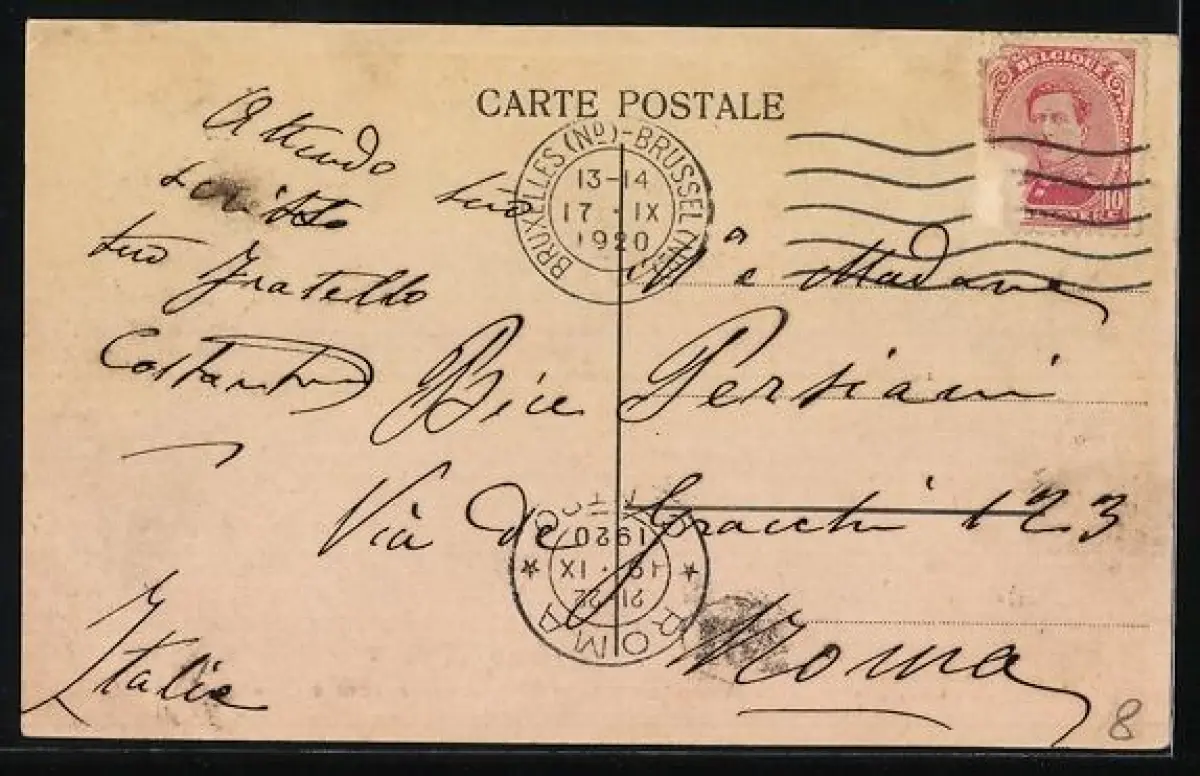 CARTE POSTALE
BELGIQUE
10
BRUXELLES (Nᴰ)-BRUSSEL (N
13-14
17·IX
1920
Attendo
tuo
scritto
tuo fratello
Costantino
à Madame
Bice Persiani
Via de Gracchi 123
Roma
Italie
ROMA
21-22
19·IX
1920
8